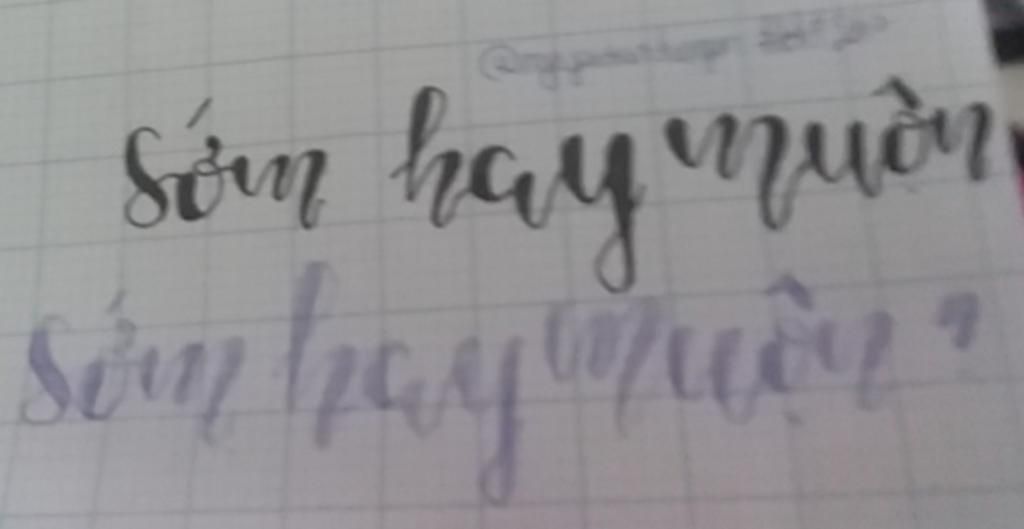 sớm hay muộn
sớm hay muộn ?